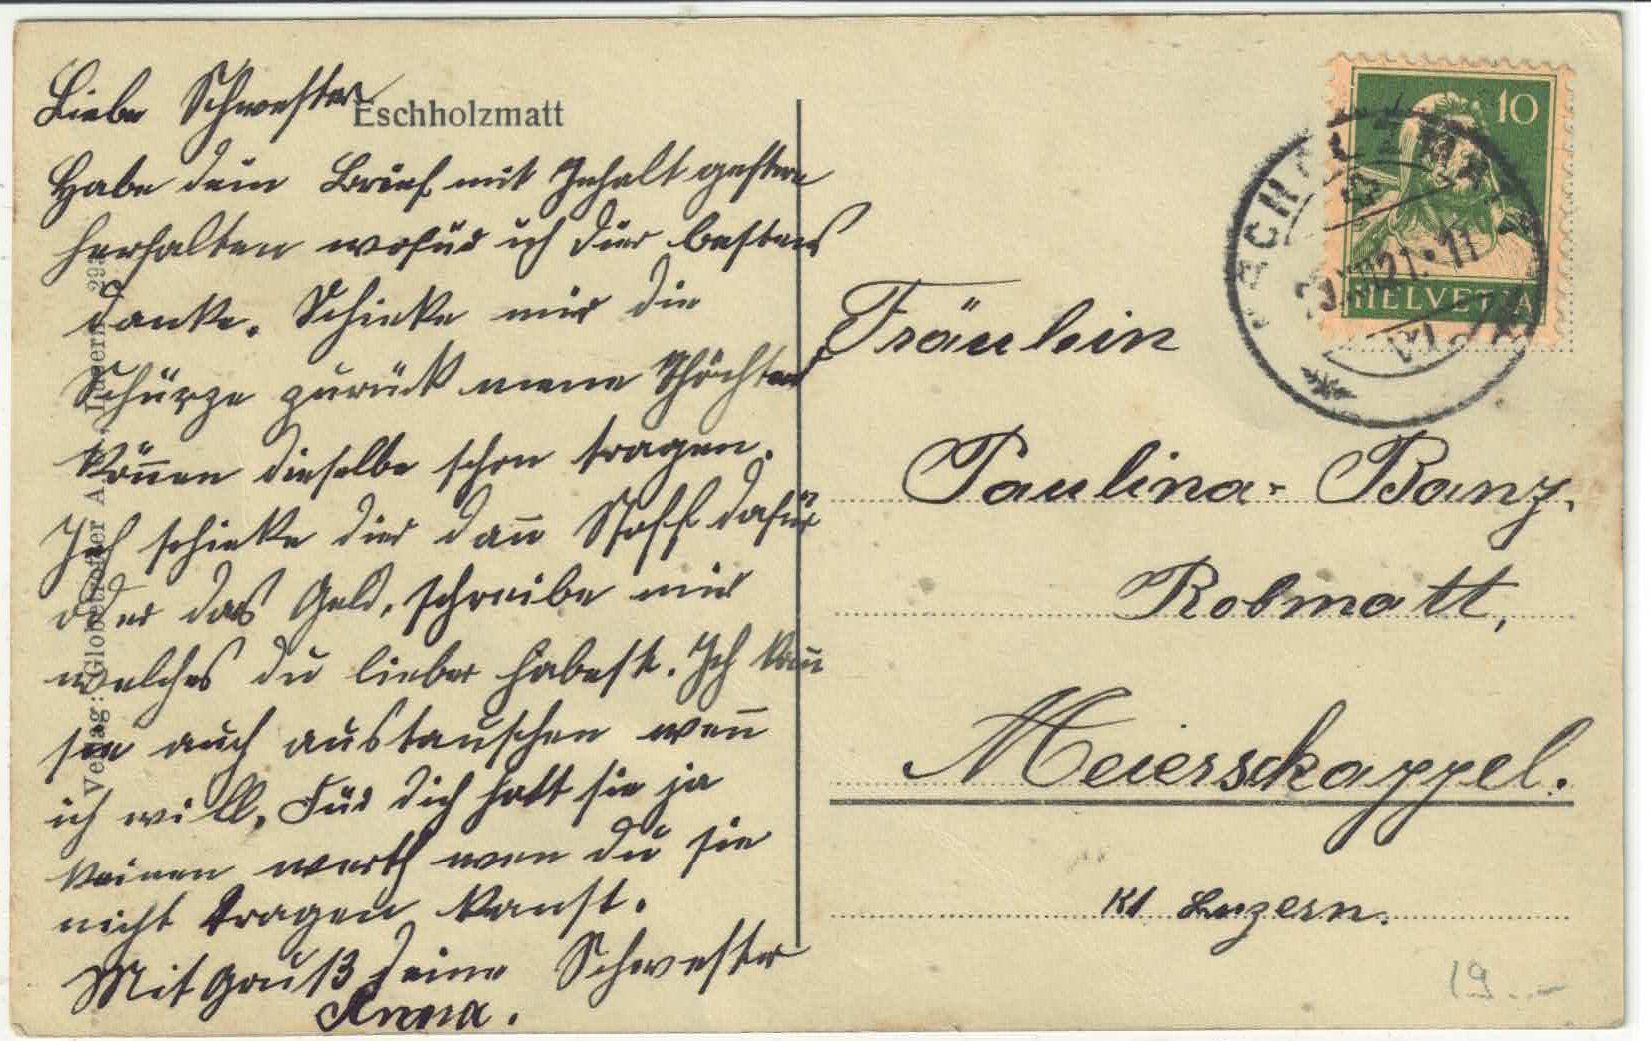 Eschholzmatt
Liebe Schwester
Habe dein Brief mit Inhalt gestern
herhalten wofür ich dier bestens
danke. Schicke mir die
Schürze zurück meine Thöchter
könen dieselbe schon tragen.
Ich schicke dier dan Stoff dafür
oder das Geld, schreibe mir
welches du lieber habest. Ich kan
sie auch austauschen wen
ich will. Für dich hatt sie ja
keinen werth wen du sie
nicht tragen kanst.
Mit Gruß deine Schwester
Anna.
Verlag: Globetrotter A. G. Luzern
10
HELVETIA
Fräulein
Paulina Banz,
Robmatt,
Meierskappel.
Kt Luzern.
19.-